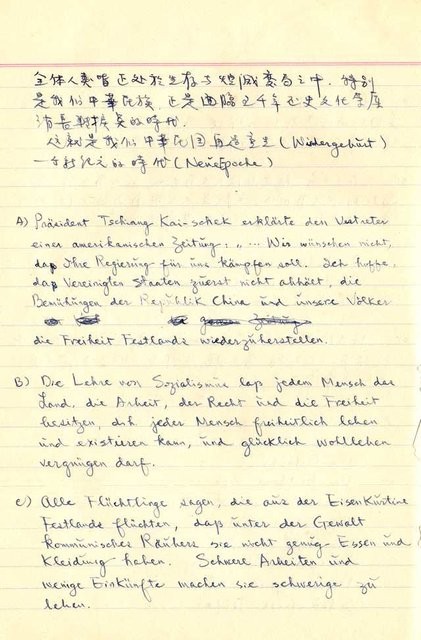 全体人类皆正处於生存与毁灭变局之中，特别
是我们中華民族，正是面臨五千年历史文化
消長
这就是我们中華民国再造重生 (Widergeburt)
一个新纪元的時代 (Neue Epoche)
A) Präsident Tschiang Kai-schek erklärte den Vertreter
einer amerikanischen Zeitung: „ ... Wir wünschen nicht,
daß Ihre Regierung für uns kämpfen soll. Ich hoffe,
daß Vereinigten Staaten zuerst nicht abhält, die
Bemühungen der Republik China und unsere Völker
die Freiheit Festlands wiederzuherstellen.
B) Die Lehre von Sozialismus laß jedem Mensch das
Land, die Arbeit, der Recht und die Freiheit
besitzen, d.h. jeder Mensch freiheitlich leben
und existieren kann, und glücklich wohlleben
vergnügen darf.
C) Alle Flüchtlinge sagen, die aus der Eisenkurtine
Festlands flüchten, daß unter der Gewalt
kommunisches Räubers sie nicht genug Essen und
Kleidung haben. Schwere Arbeiten und
wenige Einkünfte machen sie schwerige zu
leben.